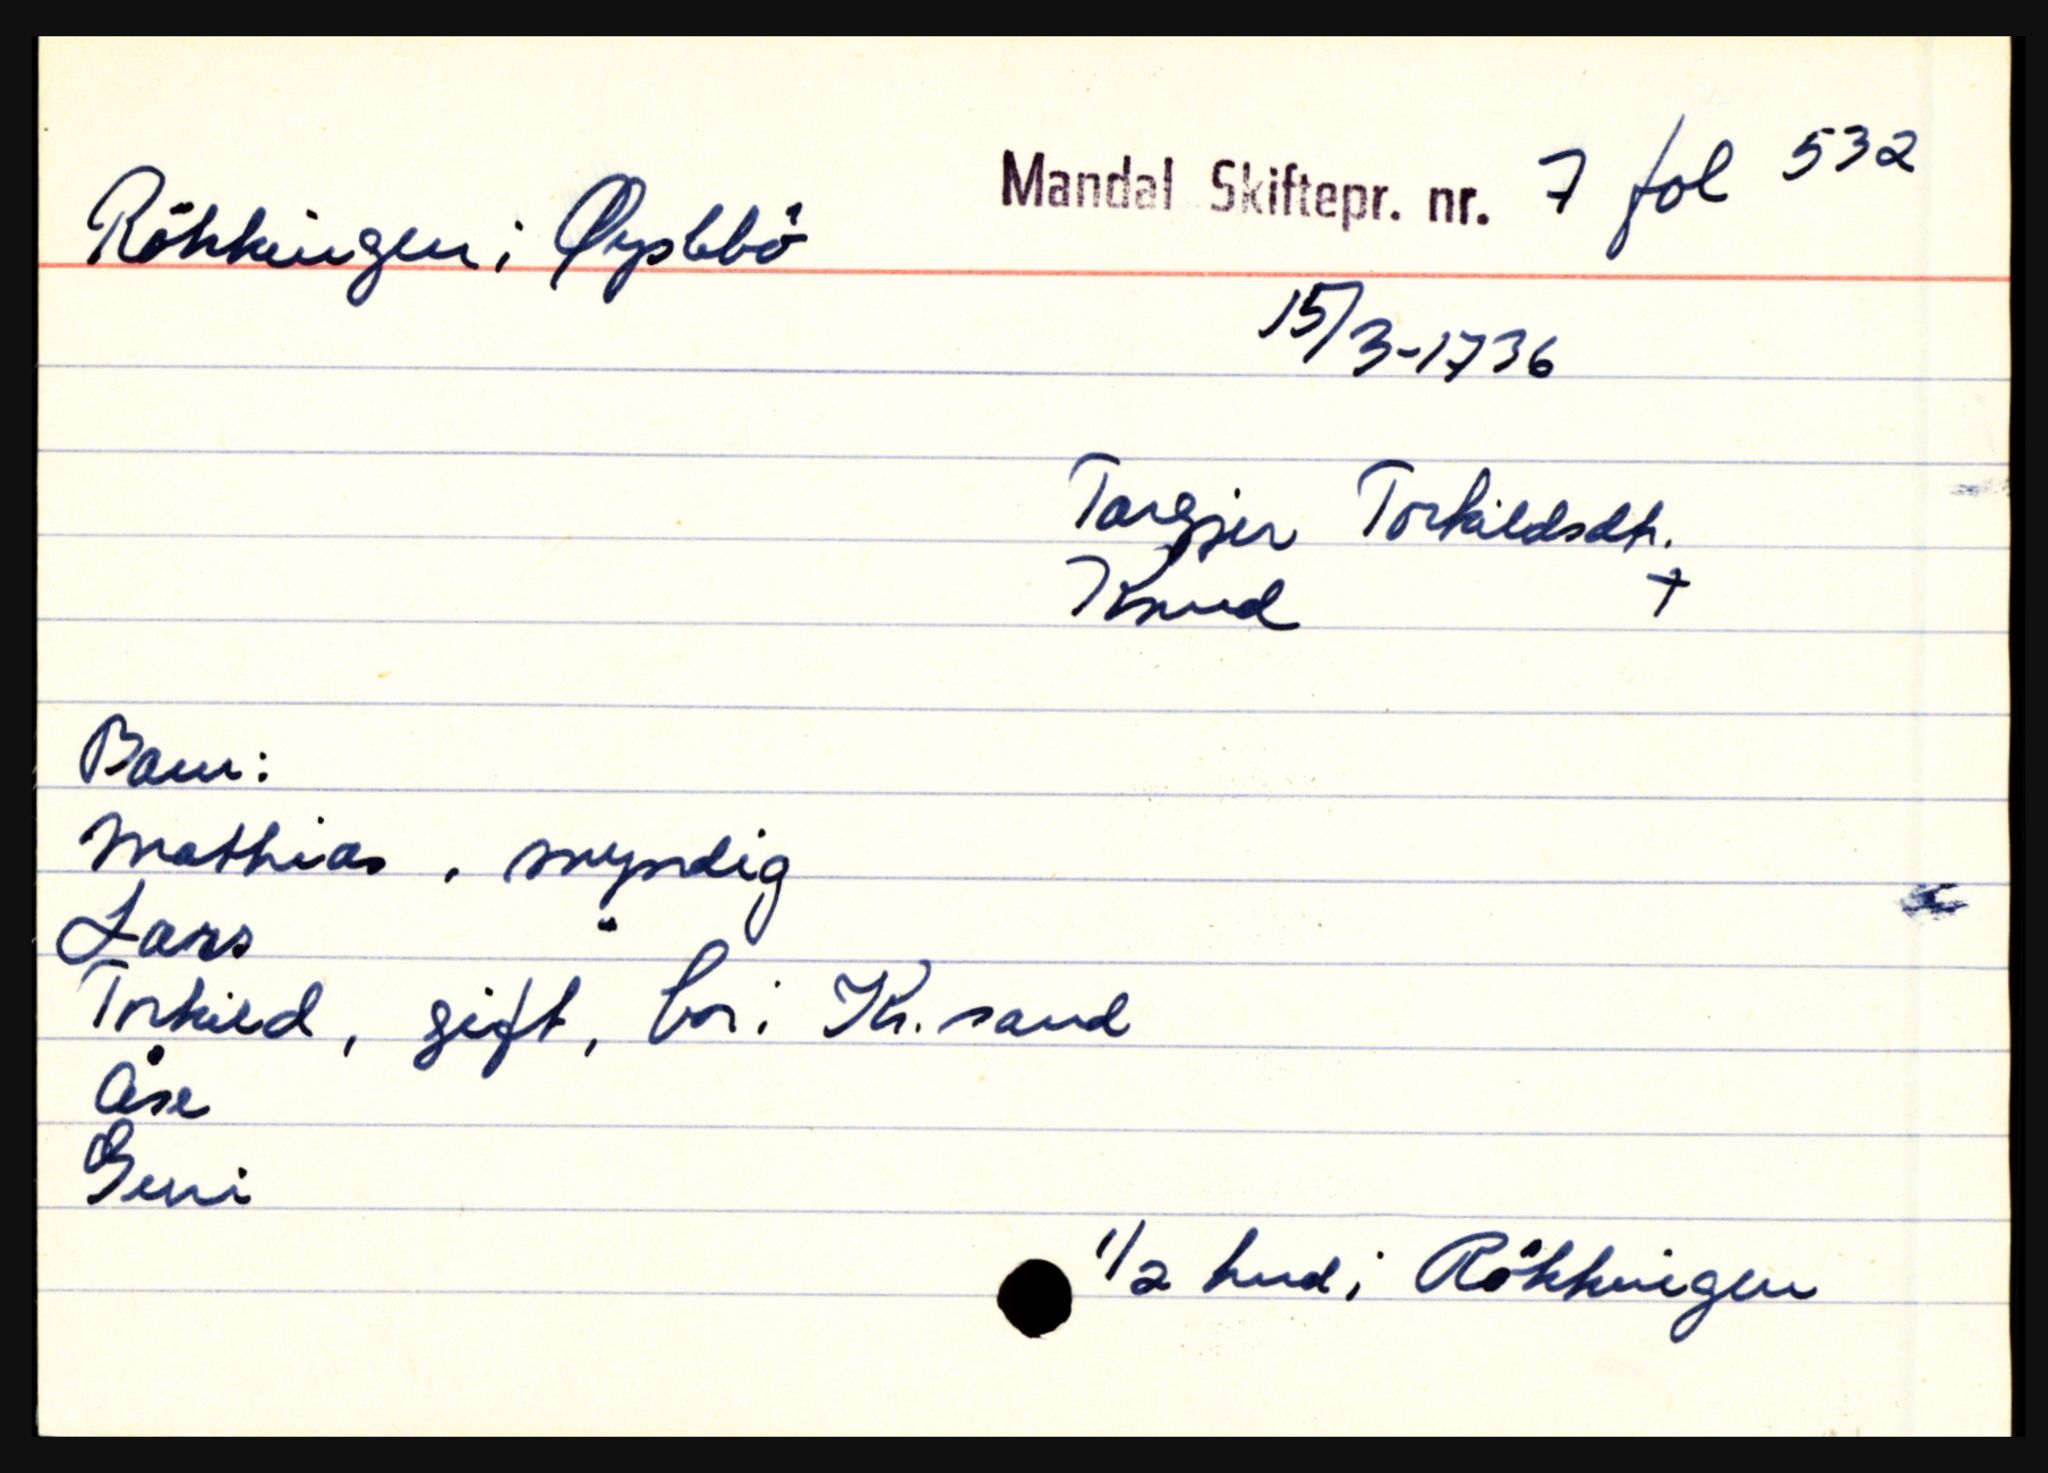 Mandal Skiftepr. nr. 7 fol 532
Rökkingen i Øyslebö
15/3-1736
Targjer Torkildsdtr.
Knud +
Barn:
Mathias, myndig
Lars "
Torkild, gift, bor i Kr.sand
Åse
Guri
1/2 hud i Rökkingen